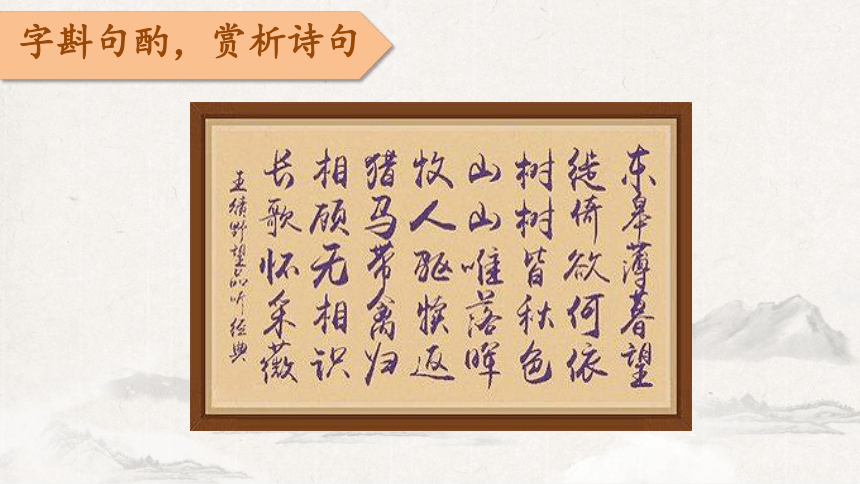 字斟句酌，赏析诗句
东皋薄暮望
徙倚欲何依
树树皆秋色
山山唯落晖
牧人驱犊返
猎马带禽归
相顾无相识
长歌怀采薇
王绩野望品听经典